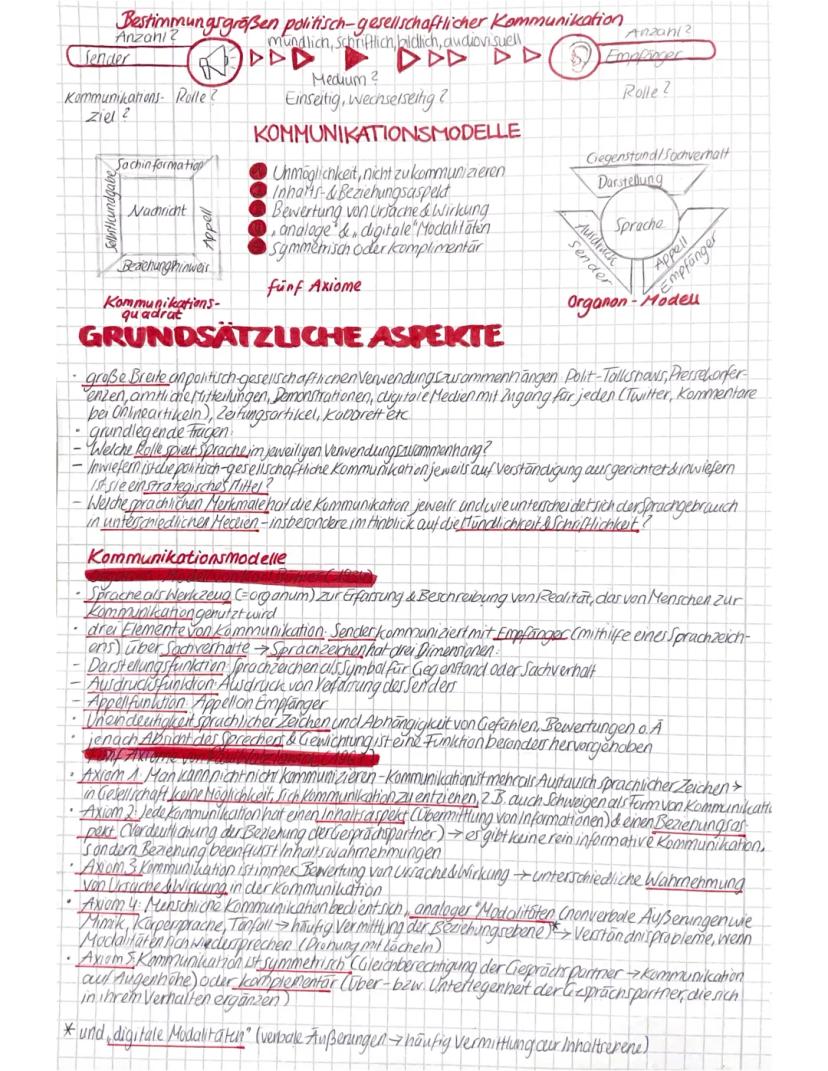 Bestimmungsgrößen politisch-gesellschaftlicher Kommunikation
Anzahl?
mündlich, schriftlich, bildlich, audiovisuell
Anzahl?
Sender
Empfänger
Medium?
Kommunikations-
ziel?
Rolle?
Einseitig, wechselseitig?
Rolle?
KOMMUNIKATIONSMODELLE
Sachinformation
Selbstkundgabe
Nachricht
Appell
Beziehungshinweis
Kommunikations-
quadrat
Unmöglichkeit, nicht zu kommunizieren
Inhalts- & Beziehungsaspekt
Bewertung von Ursache & Wirkung
„analoge" & „digitale" Modalitäten
Symmetrisch oder Komplimentär
fünf Axiome
Gegenstand/Sachverhalt
Darstellung
Sprache
Ausdruck
Sender
Appell
Empfänger
Organon-Modell
GRUNDSÄTZLICHE ASPEKTE
· große Breite an politisch-gesellschaftlichen Verwendungszusammenhängen: Polit-Talkshows, Pressekonfer-
enzen, amtliche Mitteilungen, Demonstrationen, digitale Medien mit Zugang für jeden (Twitter, Kommentare
bei Onlineartikeln), Zeitungsartikel, Kabarett etc.
· grundlegende Fragen:
- Welche Rolle spielt Sprache im jeweiligen Verwendungszusammenhang?
- Inwiefern ist die politisch-gesellschaftliche Kommunikation jeweils auf Verständigung ausgerichtet & inwiefern
ist sie ein strategisches Mittel?
- Welche sprachlichen Merkmale hat die Kommunikation jeweils und wie unterscheidet sich der Sprachgebrauch
in unterschiedlichen Medien - insbesondere im Hinblick auf die Mündlichkeit & Schriftlichkeit?
Kommunikationsmodelle
· Sprache als Werkzeug (= organum) zur Erfassung & Beschreibung von Realität, das von Menschen zur
Kommunikation genutzt wird
· drei Elemente von Kommunikation: Sender kommuniziert mit Empfänger (mithilfe eines Sprachzeich-
ens) über Sachverhalte → Sprachzeichen hat drei Dimensionen:
- Darstellungsfunktion: Sprachzeichen als Symbol für Gegenstand oder Sachverhalt
- Ausdrucksfunktion: Ausdruck von Verfassung des Senders
- Appellfunktion: Appell an Empfänger
· Uneindeutigkeit sprachlicher Zeichen und Abhängigkeit von Gefühlen, Bewertungen o. Ä
· je nach Absicht des Sprechers & Gewichtung ist eine Funktion besonders hervorgehoben
· Axiom 1: Man kann nicht nicht kommunizieren - Kommunikation ist mehr als Austausch sprachlicher Zeichen →
in Gesellschaft keine Möglichkeit, sich Kommunikation zu entziehen, z.B. auch Schweigen als Form von Kommunikati
· Axiom 2: Jede Kommunikation hat einen Inhaltsaspekt (Übermittlung von Informationen) & einen Beziehungsas-
pekt (Verdeutlichung der Beziehung der Gesprächspartner) → es gibt keine rein informative Kommunikation,
sondern Beziehung beeinflusst Inhaltswahrnehmungen
· Axiom 3: Kommunikation ist immer Bewertung von Ursache & Wirkung → unterschiedliche Wahrnehmung
von Ursache & Wirkung in der Kommunikation
· Axiom 4: Menschliche Kommunikation bedient sich „analoger" Modalitäten (nonverbale Äußerungen wie
Mimik, Körpersprache, Tonfall → häufig Vermittlung der Beziehungsebene)* → Verständnisprobleme, wenn
Modalitäten sich wiedersprechen (Drohung mit Lächeln)
· Axiom 5: Kommunikation ist symmetrisch (Gleichberechtigung der Gesprächspartner → Kommunikation
auf Augenhöhe) oder komplementär (Über- bzw. Unterlegenheit der Gesprächspartner, die sich
in ihrem Verhalten ergänzen)
* und „digitale Modalitäten" (verbale Äußerungen → häufig Vermittlung der Inhaltsebene)